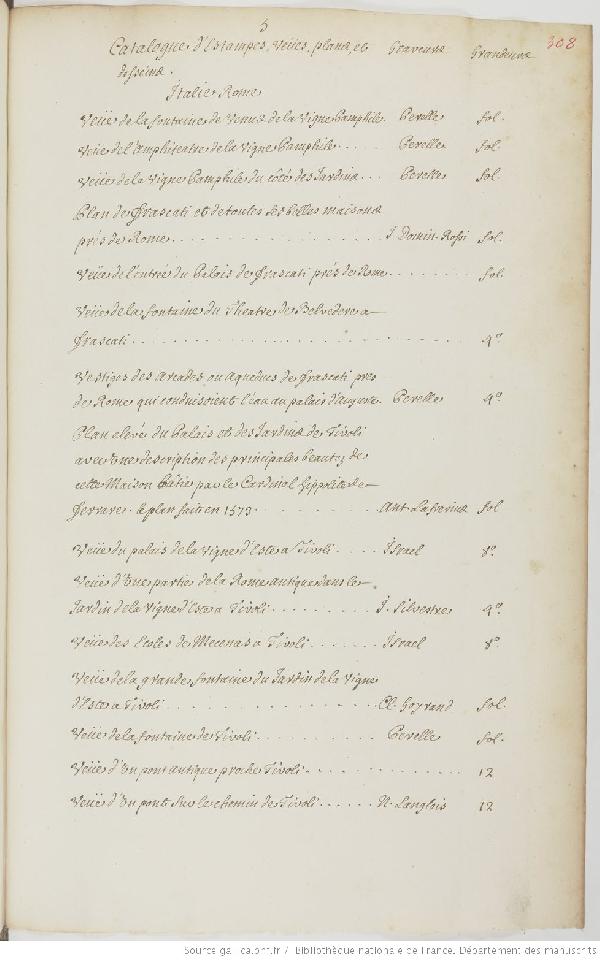 5
308
Catalogue d'Estampes, Veües, plans, et Graveurs Grandeurs
desseins.
Italie Rome
Veüe de la fontaine de Venus de la Vigne Pamphile Perelle fol.
Veüe de l'amphiteatre de la Vigne Pamphile..... Perelle fol.
Veüe de la Vigne Pamphile du côté des Jardins... Perelle fol.
Plan de Frascati et de toutes ses belles maisons
prés de Rome.................. J. Domin. Rossi fol.
Veüe de l'entrée du Palais de Frascati prés de Rome........ fol.
Veüe de la fontaine du Theatre de Belvedere a
Frascati........................ 4.º
Vestiges des arcades, ou aqueducs de Frascati pres
de Rome qui conduisoient l'eau au palais d'Auguste Perelle 4.º
Plan elevé du Palais et des Jardins de Tivoli
avec une description des principales beautez de
cette Maison bâtie par le Cardinal Hippolite de
Ferrare. le plan fait en 1573.......... Ant. Lafrerius fol
Veüe du palais de la Vigne d'Este a Tivoli..... Israel 8.º
Veüe d'Une partie de la Rome antique dans le
Jardin de la Vigne d'Este a Tivoli......... J. Silvestre 4.º
Veüe des Ecoles de Mecenas a Tivoli....... Israel 8.º
Veüe de la grande fontaine du Jardin de la Vigne
d'Este a Tivoli.................. Cl. Goyrand fol.
Veüe de la fontaine de Tivoli........... Perelle fol.
Veüe d'Un pont antique proche Tivoli............. 12
Veüe d'Un pont Sur le chemin de Tivoli...... N. Langlois 12
Source gallica.bnf.fr / Bibliothèque nationale de France. Département des manuscrits